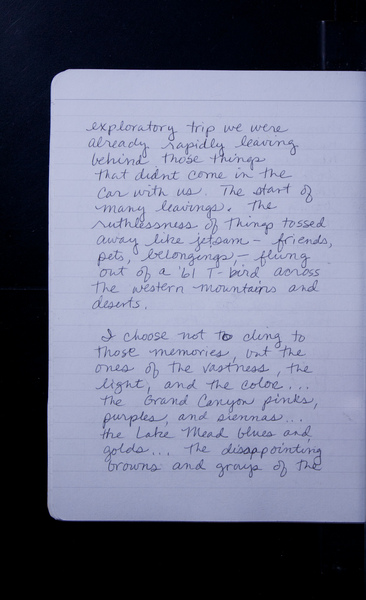 exploratory trip we were
already rapidly leaving
behind those things
that didnt come in the
car with us. The start of
many leavings. The
ruthlessness of things tossed
away like jetsam - friends,
pets, belongings, - flung
out of a '61 T-bird across
the western mountains and
deserts.
I choose not to cling to
those memories, but the
ones of the vastness, the
light, and the color...
the Grand Canyon pinks,
purples, and siennas...
the Lake Mead blues and
golds... the disappointing
browns and grays of the